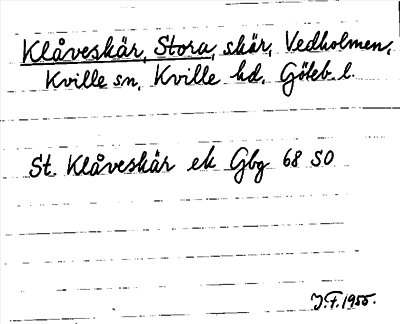 Klåveskär, Stora, skär, Vedholmen,
Kville sn, Kville hd, Göteb. l.
St. Klåveskär ek Gbg 68 SO
J.F. 1955.